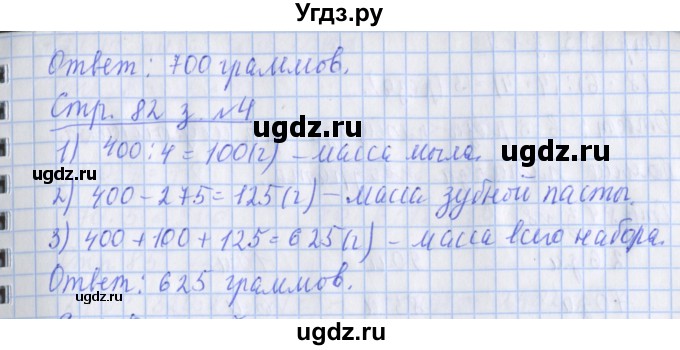 Угдз.ру
Ответ: 700 граммов.
Стр. 82 з. №4
1) 400:4=100(г) – масса мыла.
2) 400-275=125(г) – масса зубной пасты.
3) 400+100+125=625(г) – масса всего набора.
Ответ: 625 граммов.
ugdz.ru
ugdz.ru
ugdz.ru
ugdz.ru
ugdz.ru
ugdz.ru
ugdz.ru
ugdz.ru
ugdz.ru